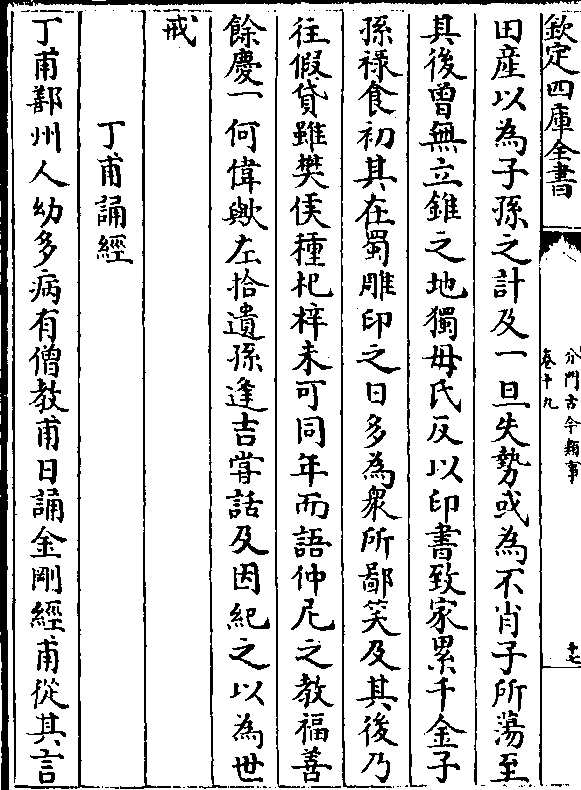 欽定四庫全書
分門古今類事
卷十九
十七
田產以為子孫之計及一旦失勢或為不肖子所蕩至
其後曾無立錐之地獨毋氏反以印書致家累千金子
孫祿食初其在蜀雕印之日多為衆所鄙笑及其後乃
往假貸雖樊侯種杞梓未可同年而語仲尼之教福善
餘慶一何偉歟左拾遺孫逢吉嘗話及因紀之以為世
戒
丁甫誦經
丁甫鄯州人幼多病有僧教甫日誦金剛經甫從其言